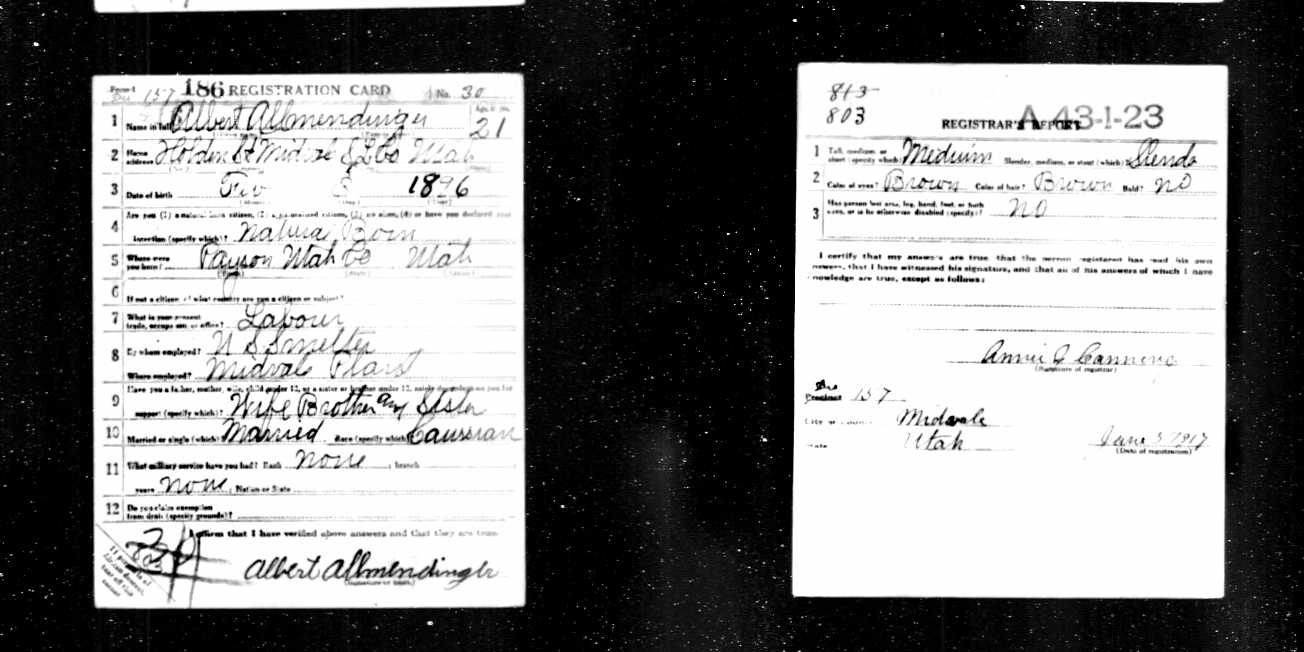 Form 1 157 186 REGISTRATION CARD No. 30
1 Name in full Albert Allmendinger Age, in yrs. 21
2 Home address Holden St Midvale S L Co Utah
3 Date of birth Feb 1896
4 Are you (1) a natural-born citizen, (2) a naturalized citizen, (3) an alien, (4) or have you declared your
intention (specify which)? Natural Born
5 Where were you born? Payson Utah Co Utah
6 If not a citizen, of what country are you a citizen or subject?
7 What is your present trade, occupation, or office? Labour
8 By whom employed? U S Smelter
Where employed? Midvale Plant
9 Have you a father, mother, wife, child under 12, or a sister or brother under 12, solely dependent on you for
support (specify which)? Wife Brother any Sister
10 Married or single (which)? Married Race (specify which)? Caussian
11 What military service have you had? Rank none ; branch
years none ; Nation or State
12 Do you claim exemption from draft (specify grounds)?
I affirm that I have verified above answers and that they are true.
Albert Allmendinger
(Signature or mark)
If person is of African descent, tear off this corner
813
803
A 43-1-23
REGISTRAR'S REPORT
1 Tall, medium, or short (specify which)? Medium Slender, medium, or stout (which)? Slender
2 Color of eyes? Brown Color of hair? Brown Bald? NO
3 Has person lost arm, leg, hand, foot, or both eyes, or is he otherwise disabled (specify)? NO
I certify that my answers are true, that the person registered has read his own
answers, that I have witnessed his signature, and that all of his answers of which I have
knowledge are true, except as follows:
Annie J Canning
(Signature of registrar)
Precinct 157
City or County Midvale
State Utah June 5 1917
(Date of registration)